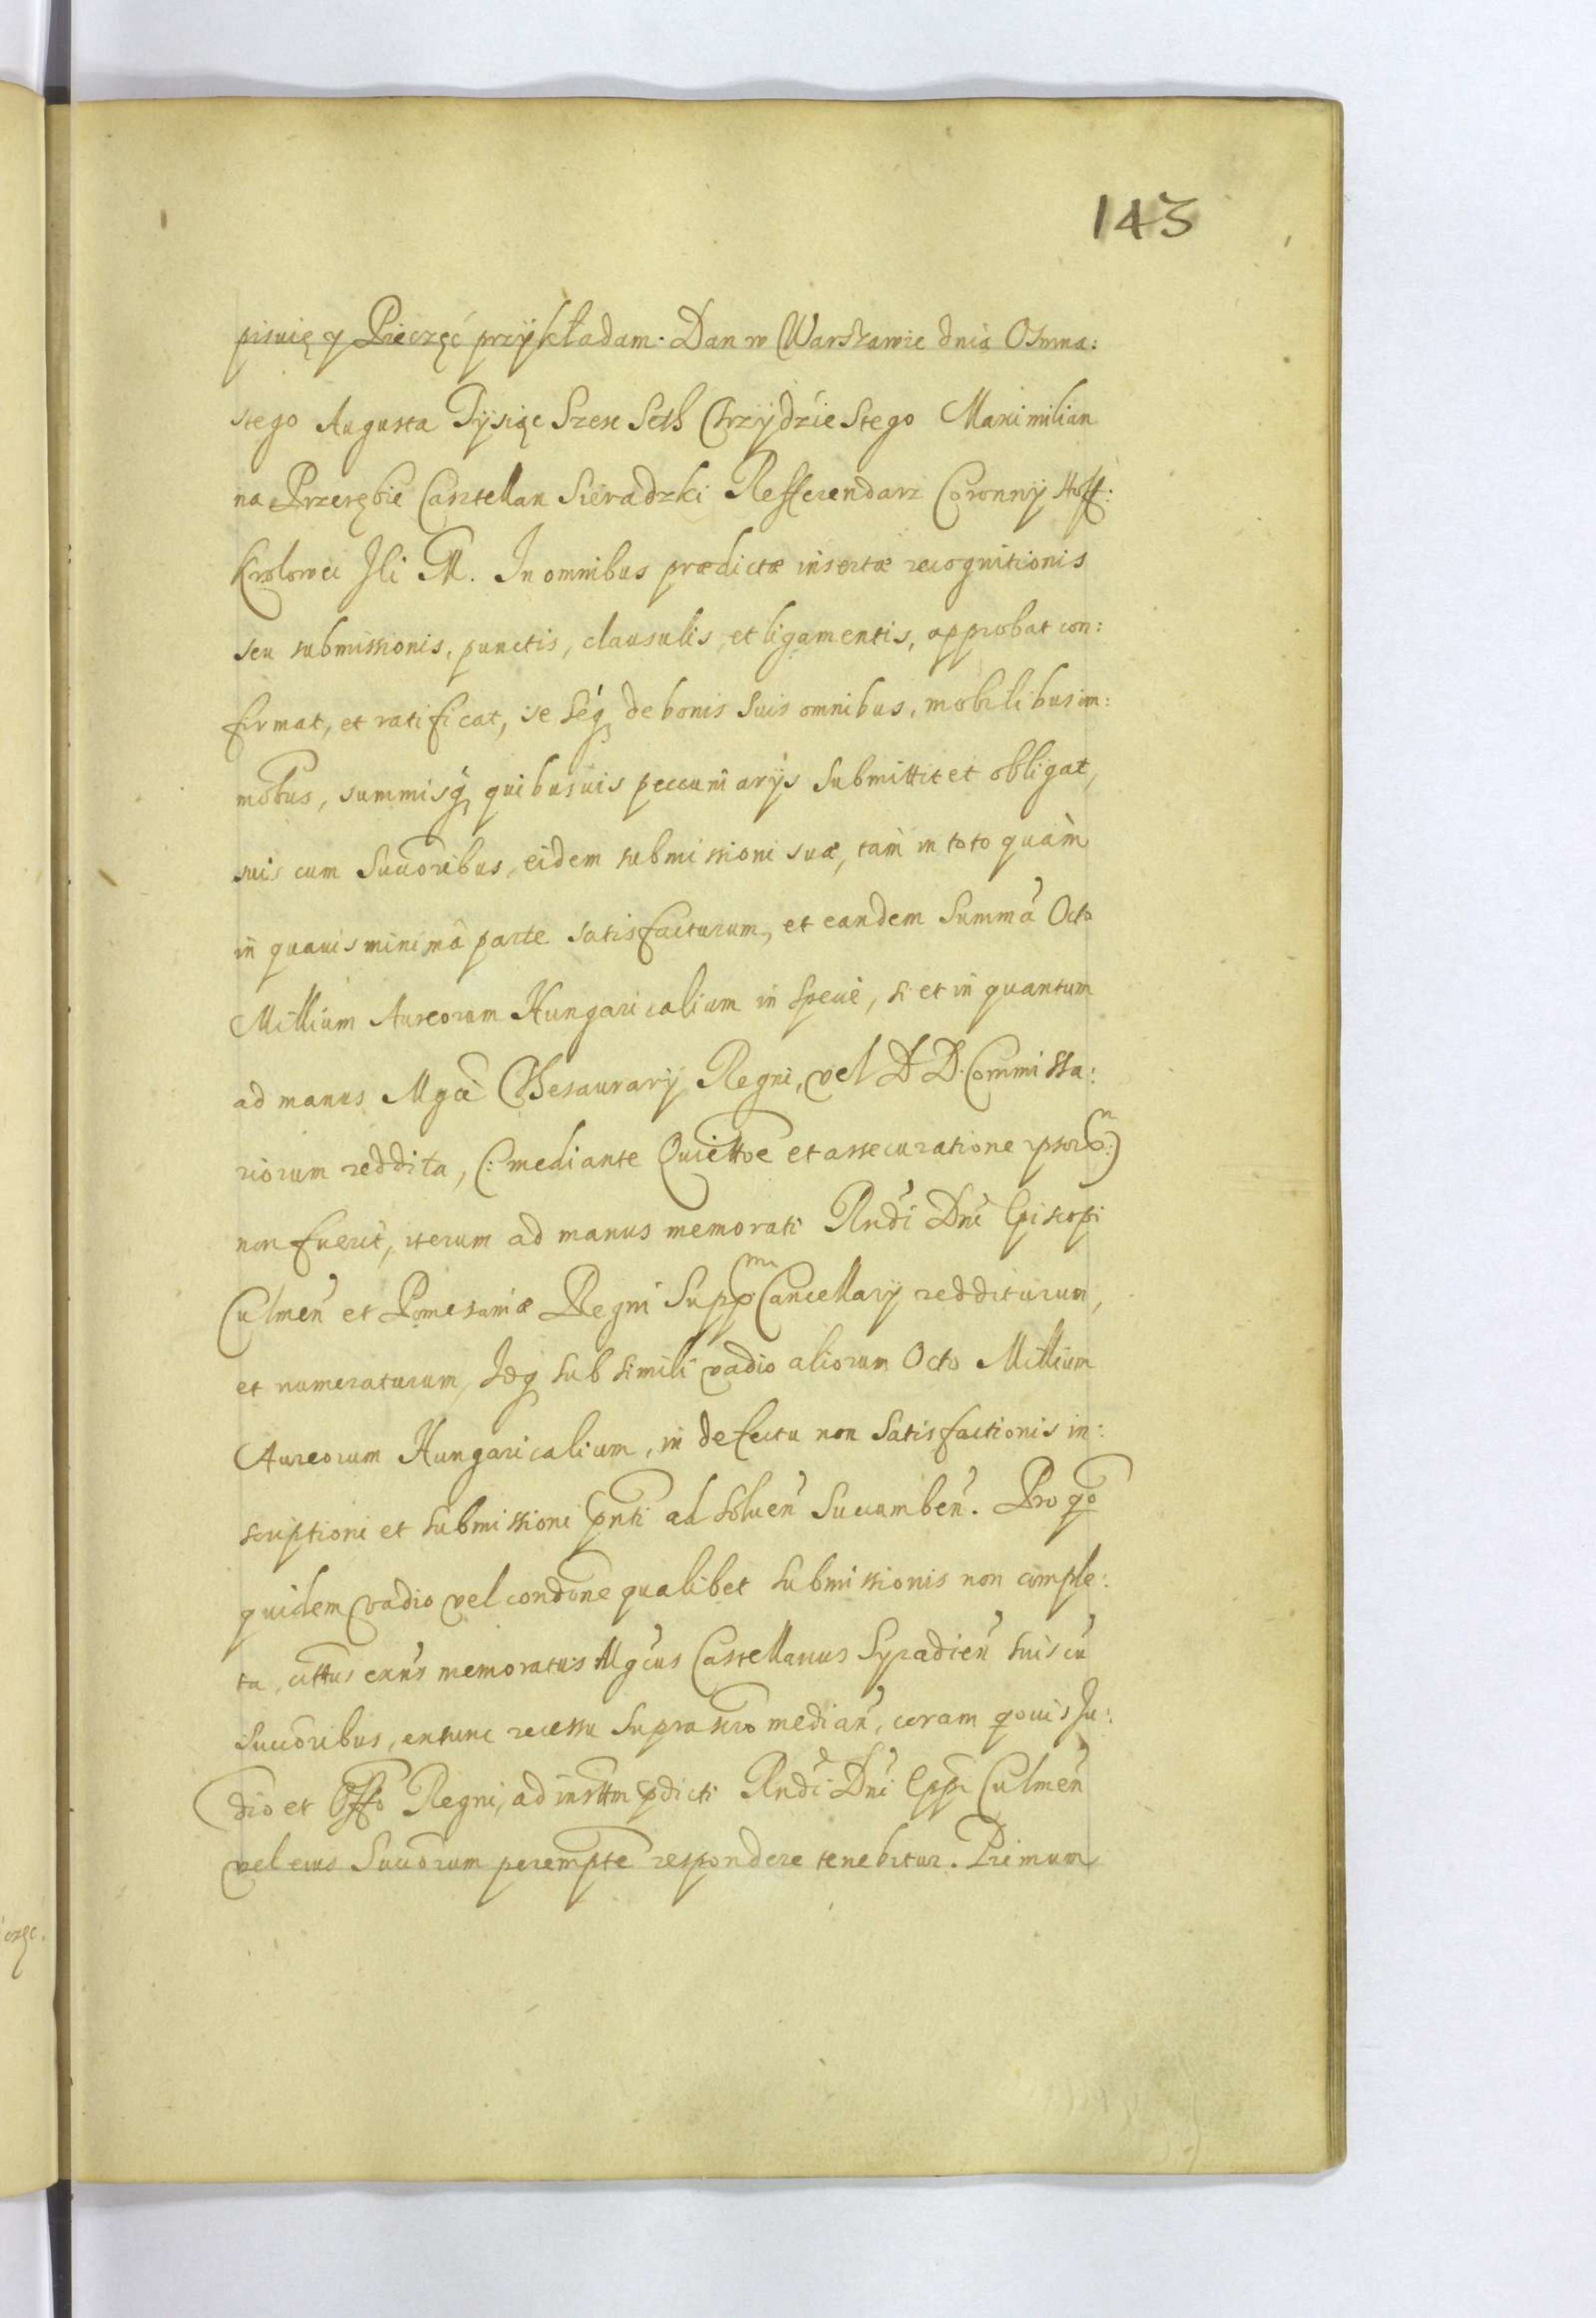 143
pisuię y Pieczęć przÿkładam. Dan w Warszawie dnia Osmna:
stego Augusta Tÿsiąc Szesc Seth Trzÿdziestego Maximilian
na Przerębie Casztellan Sieradzki Refferendarz Coronnÿ Hoff:
Krolowei Jli M. In omnibus prædictæ insertæ recognitionis
seu submissionis, punctis, clausulis, et ligamentis, approbat con:
firmat, et ratificat, se séq de bonis suis omnibus, mobilibus im:
mobus, summisq quibusuis peccuniarÿs submittit et obligat,
suis cum Succoribus, eidem submissioni suæ, tam in toto quàm
in quauis minimâ parte satisfacturum, et eandem Summã Octo
Millium Aureorum Hungaricalium in specie, si et in quantum
ad manus Mgci Thesaurarÿ Regni, vel D D. Commissa:
riorum reddita, (: mediante Quiettõe et assecuratione ipsorum :)
non fuerit, iterum ad manus memorati Rndi Dni Episcopi
Culmen et Pomesaniæ Regni Suppmi Cancellarÿ redditurum,
et numeraturum, Idq sub simili vadio aliorum Octo Millium
Aureorum Hungaricalium, in defectu non satisfactionis in:
scriptioni et submissioni pnti ad soluen succumben. Pro qo
quidem vadio vel condõne qualibet submissionis non comple:
ta, cittus exns memoratus Mgcus Castellanus Syradien suis cũ
Succoribus, extunc recessu suprascro median, coram qouis Ju:
dio et Offo Regni, ad insttm pdicti Rndi Dni Eppi Culmen
vel eius Succorum perempte respondere tenebitur. Primum